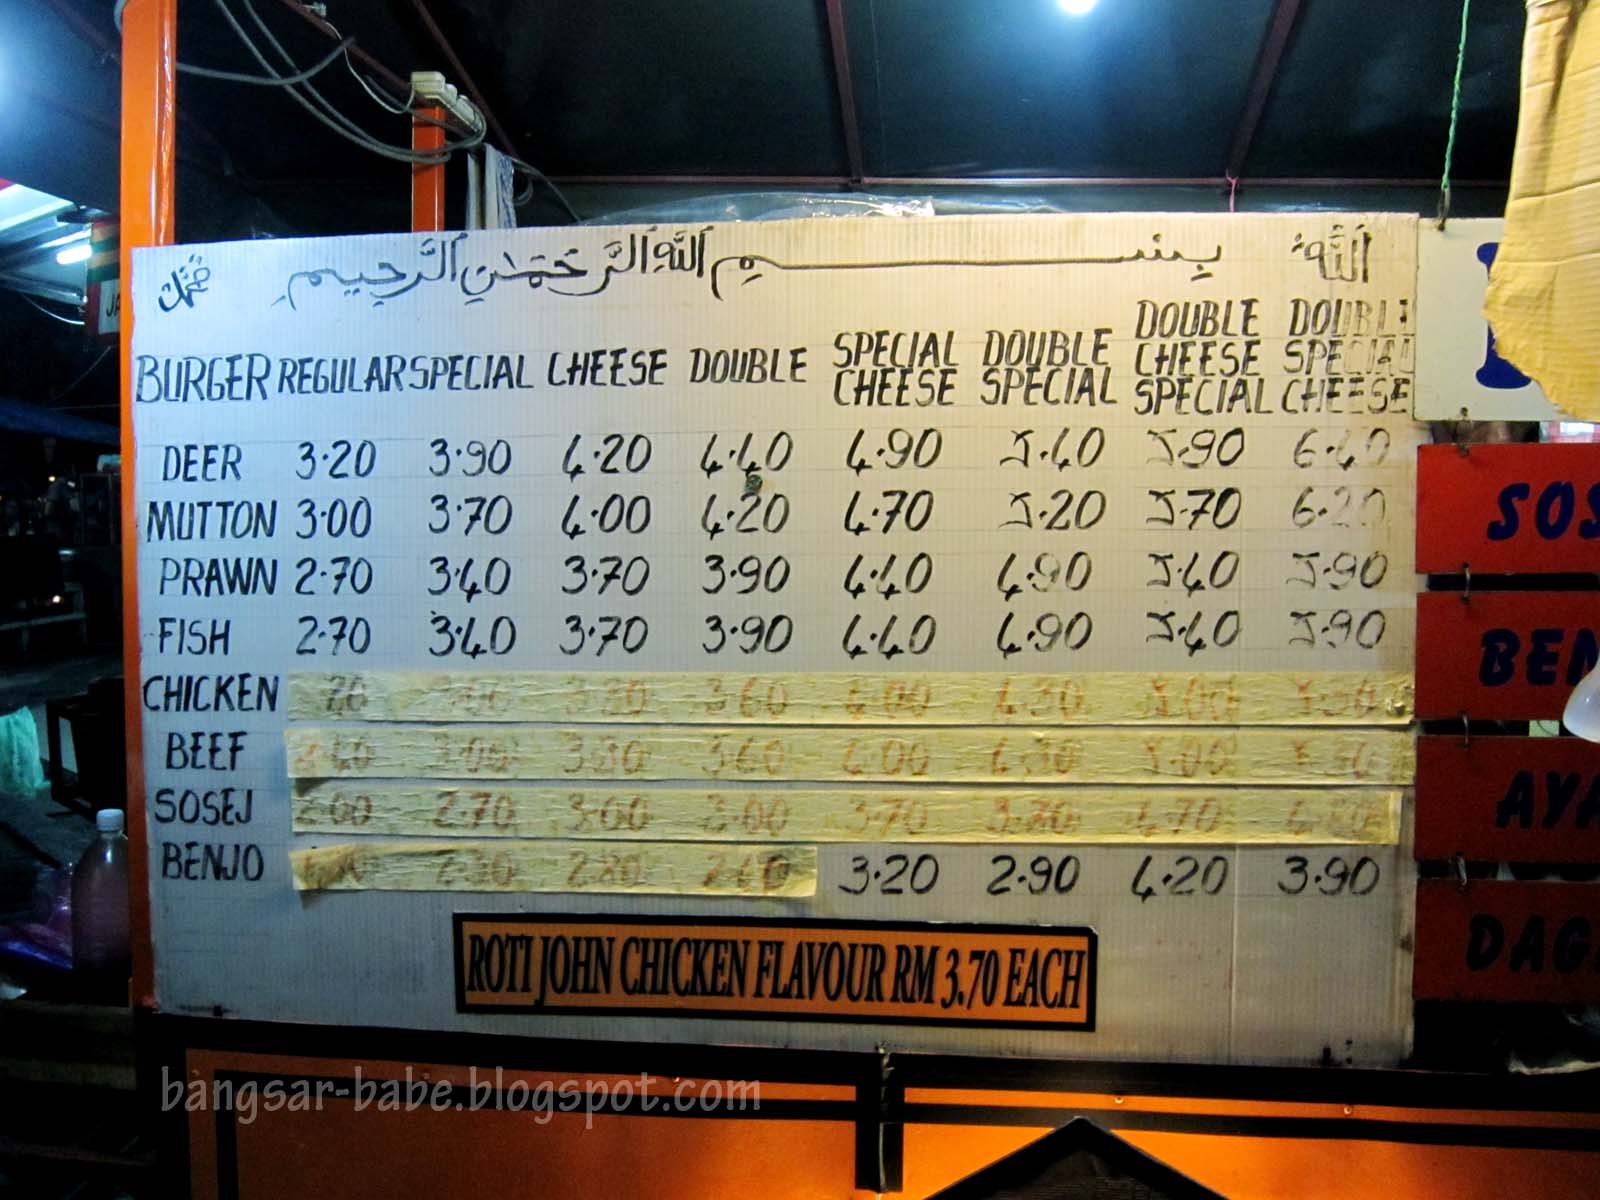 الله بسم الله الرحمن الرحيم محمد
BURGER REGULAR SPECIAL CHEESE DOUBLE SPECIAL CHEESE DOUBLE SPECIAL DOUBLE CHEESE SPECIAL DOUBLE SPECIAL CHEESE
DEER 3·20 3·90 4·20 4·40 4·90 5·40 5·90 6·40
MUTTON 3·00 3·70 4·00 4·20 4·70 5·20 5·70 6·20
PRAWN 2·70 3·40 3·70 3·90 4·40 4·90 5·40 5·90
FISH 2·70 3·40 3·70 3·90 4·40 4·90 5·40 5·90
CHICKEN 3·60 4·00 4·30 5·00 5·30
BEEF 3·00 3·60 4·00 4·30 5·00 5·30
SOSEJ 2·00 2·70 3·00 3·00 3·70 4·70
BENJO 2·30 3·20 2·90 4·20 3·90
ROTI JOHN CHICKEN FLAVOUR RM 3.70 EACH
SOS
BEN
AYA
DAG
bangsar-babe.blogspot.com